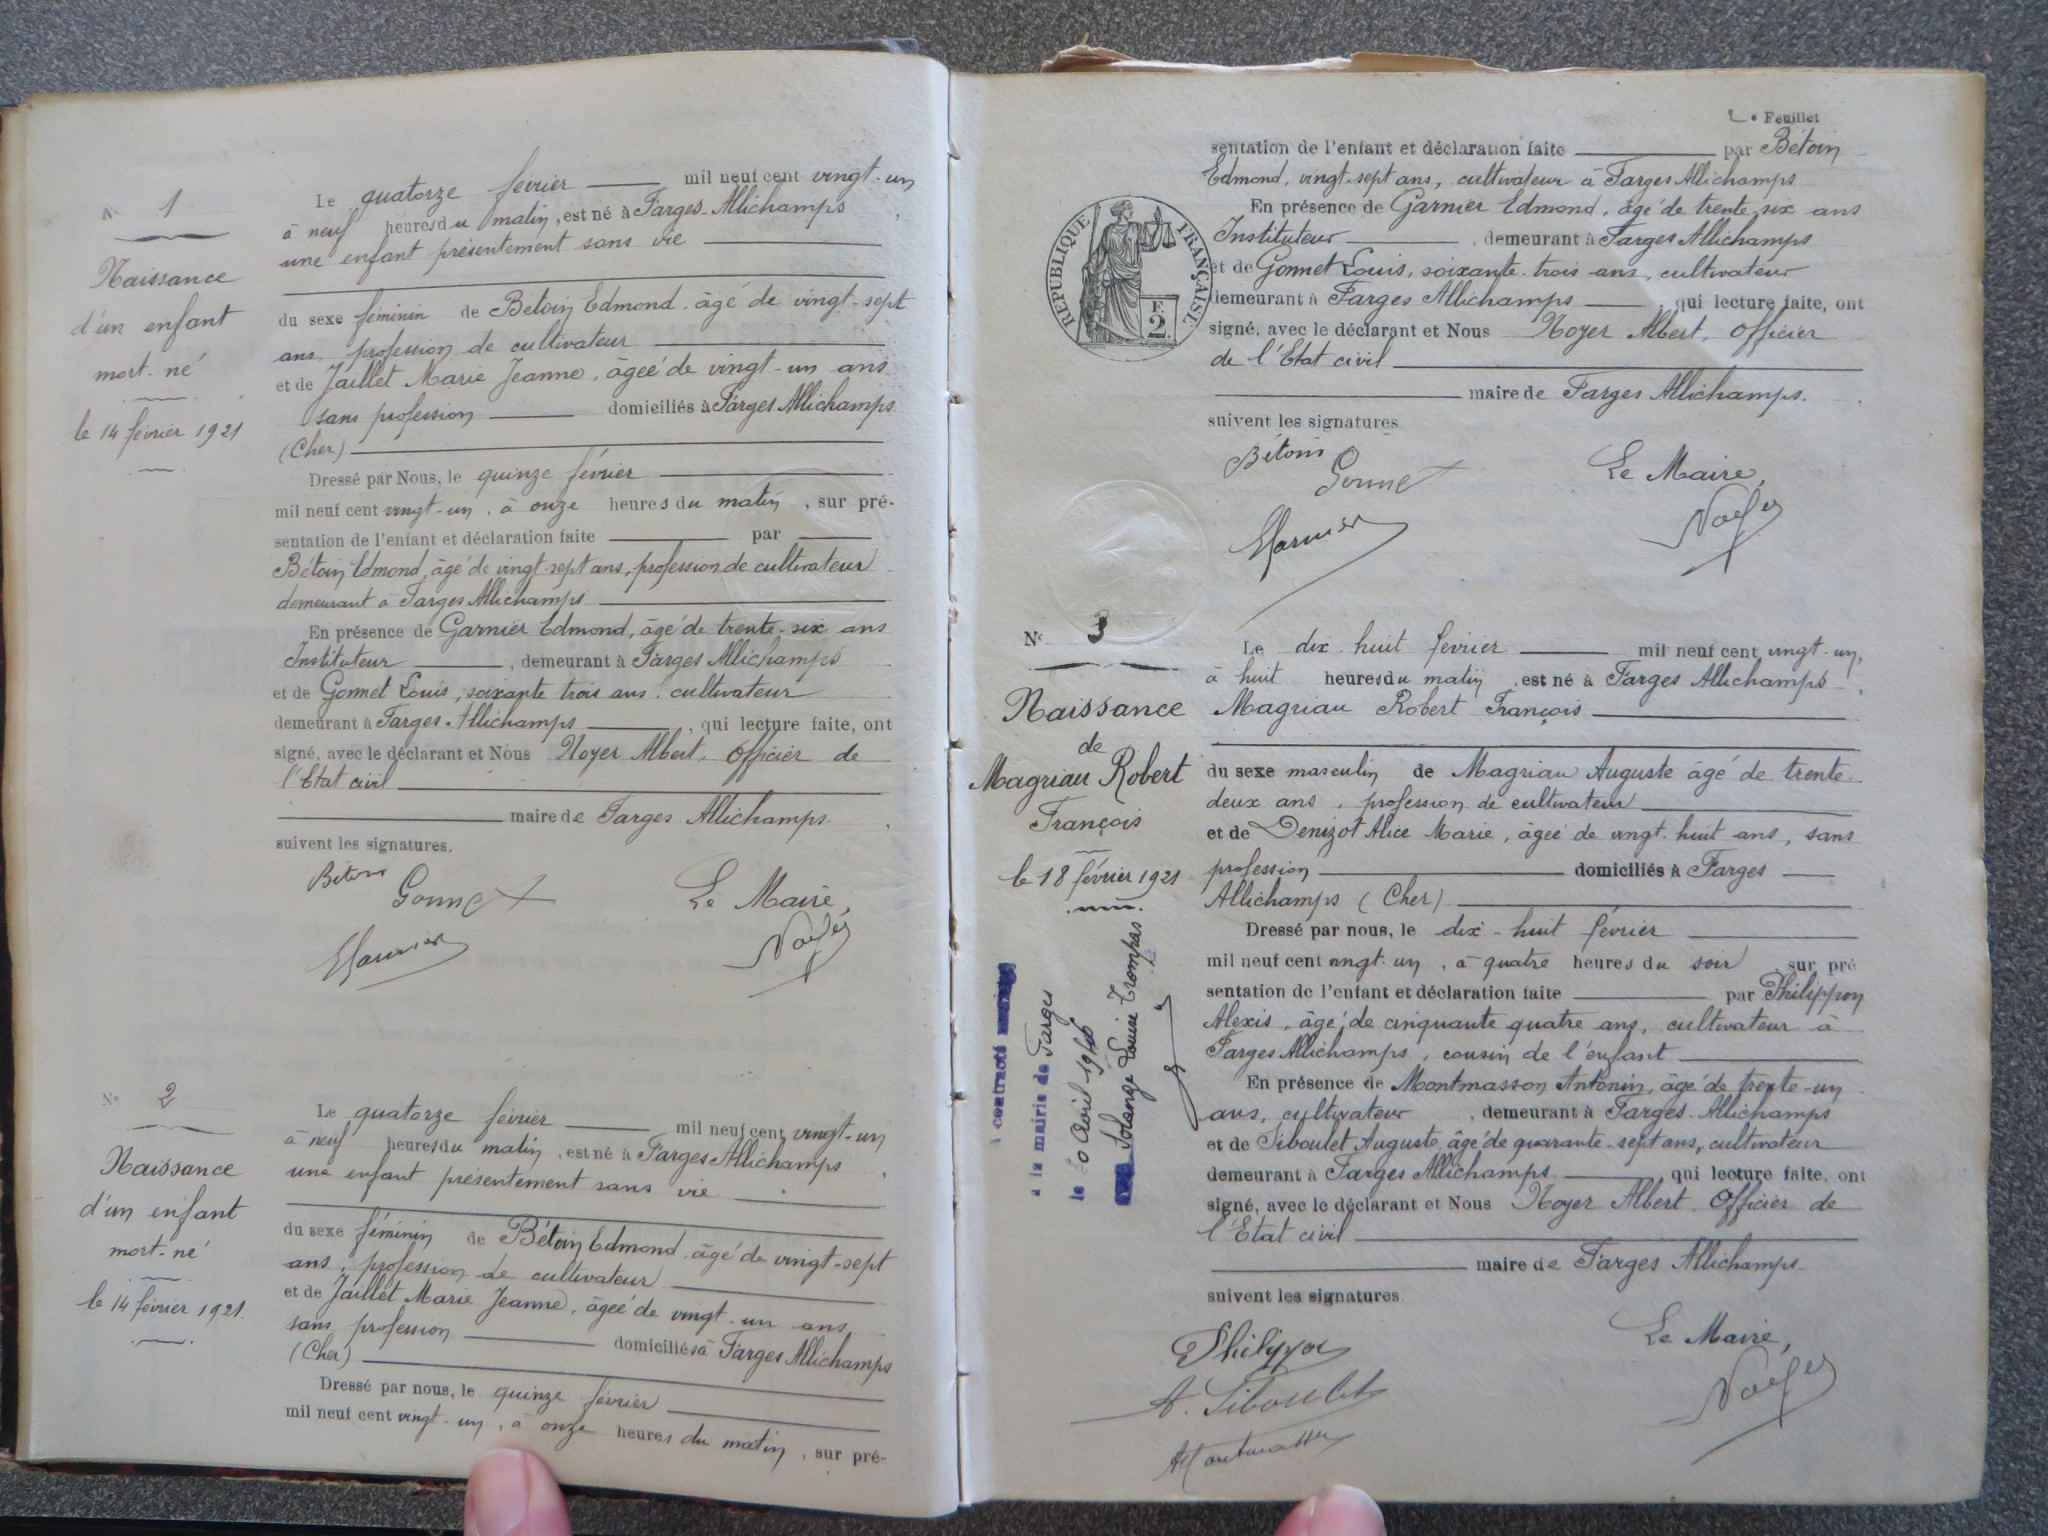 N° 1
Naissance
d'un enfant
mort-né
le 14 février 1921
Le quatorze février mil neuf cent vingt-un
à neuf heures du matin, est né à Farges-Allichamps
une enfant présentement sans vie
du sexe féminin de Bétoin Edmond, âgé de vingt-sept
ans, profession de cultivateur
et de Jaillet Marie Jeanne, âgée de vingt-un ans
sans profession domiciliés à Farges Allichamps
(Cher)
Dressé par Nous, le quinze février
mil neuf cent vingt-un, à onze heures du matin, sur pré-
sentation de l'enfant et déclaration faite par
Bétoin Edmond, âgé de vingt-sept ans, profession de cultivateur
demeurant à Farges Allichamps
En présence de Garnier Edmond, âgé de trente-six ans
Instituteur, demeurant à Farges Allichamps
et de Gonnet Louis, soixante trois ans, cultivateur
demeurant à Farges-Allichamps, qui lecture faite, ont
signé, avec le déclarant et Nous Noyer Albert, Officier de
l'Etat civil
maire de Farges Allichamps.
suivent les signatures.
Bétoin
Gonnet
Le Maire,
EGarnier
Noyer
N° 2
Naissance
d'un enfant
mort-né
le 14 février 1921.
Le quatorze février mil neuf cent vingt-un
à neuf heures du matin, est né à Farges Allichamps
une enfant présentement sans vie
du sexe féminin de Bétoin Edmond, âgé de vingt-sept
ans, profession de cultivateur
et de Jaillet Marie Jeanne, âgée de vingt-un ans
sans profession domiciliés à Farges Allichamps
(Cher)
Dressé par nous, le quinze février
mil neuf cent vingt-un, à onze heures du matin, sur pré-
2e Feuillet
sentation de l'enfant et déclaration faite par Bétoin
Edmond, vingt-sept ans, cultivateur à Farges Allichamps
En présence de Garnier Edmond, âgé de trente six ans
Instituteur, demeurant à Farges Allichamps
et de Gonnet Louis, soixante-trois ans, cultivateur
demeurant à Farges Allichamps, qui lecture faite, ont
signé, avec le déclarant et Nous Noyer Albert, Officier
de l'Etat civil
maire de Farges Allichamps.
suivent les signatures
REPUBLIQUE FRANÇAISE
F.
2.
Bétoin
Gonnet
Le Maire,
EGarnier
Noyer
N° 3
Naissance
de
Magriau Robert
François
le 18 février 1921
contracté mariage
à la mairie de Farges
le avril 1946
avec Solange Louise Trompas
Le dix-huit février mil neuf cent vingt-un,
à huit heures du matin, est né à Farges Allichamps
Magriau Robert François
du sexe masculin de Magriau Auguste âgé de trente
deux ans, profession de cultivateur
et de Denizot Alice Marie, âgée de vingt-huit ans, sans
profession domiciliés à Farges
Allichamps (Cher)
Dressé par nous, le dix-huit février
mil neuf cent vingt-un, à quatre heures du soir sur pré
sentation de l'enfant et déclaration faite par Philippon
Alexis, âgé de cinquante quatre ans, cultivateur à
Farges Allichamps, cousin de l'enfant
En présence de Montmasson Antonin, âgé de trente-un
ans, cultivateur, demeurant à Farges-Allichamps
et de Siboulet Auguste, âgé de quarante-sept ans, cultivateur
demeurant à Farges Allichamps qui lecture faite, ont
signé, avec le déclarant et Nous Noyer Albert Officier de
l'Etat civil
maire de Farges Allichamps
suivent les signatures
Philippon
Le Maire,
A. Siboulet
Noyer
Montmasson